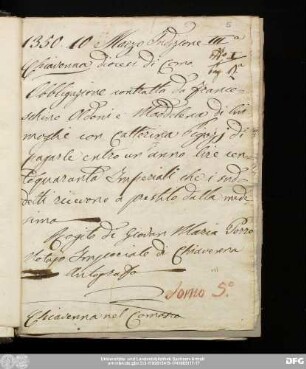 1350 10 Marzo Indizione IIIa
Chiavenna diocesi di Como
Obbligazione contratta da France-
schino Oldoni e Maddalena di lui
moglie con Catterina di
pagarle entro un anno lire cen-
toquaranta Imperiali che i sud-
detti ricevono a prestito dalla mede-
sima
Rogito di Giovan Maria Porro
Notajo Imperiale di Chiavenna
Autografo
Tomo 5.o
Chiavenna nel Comasco